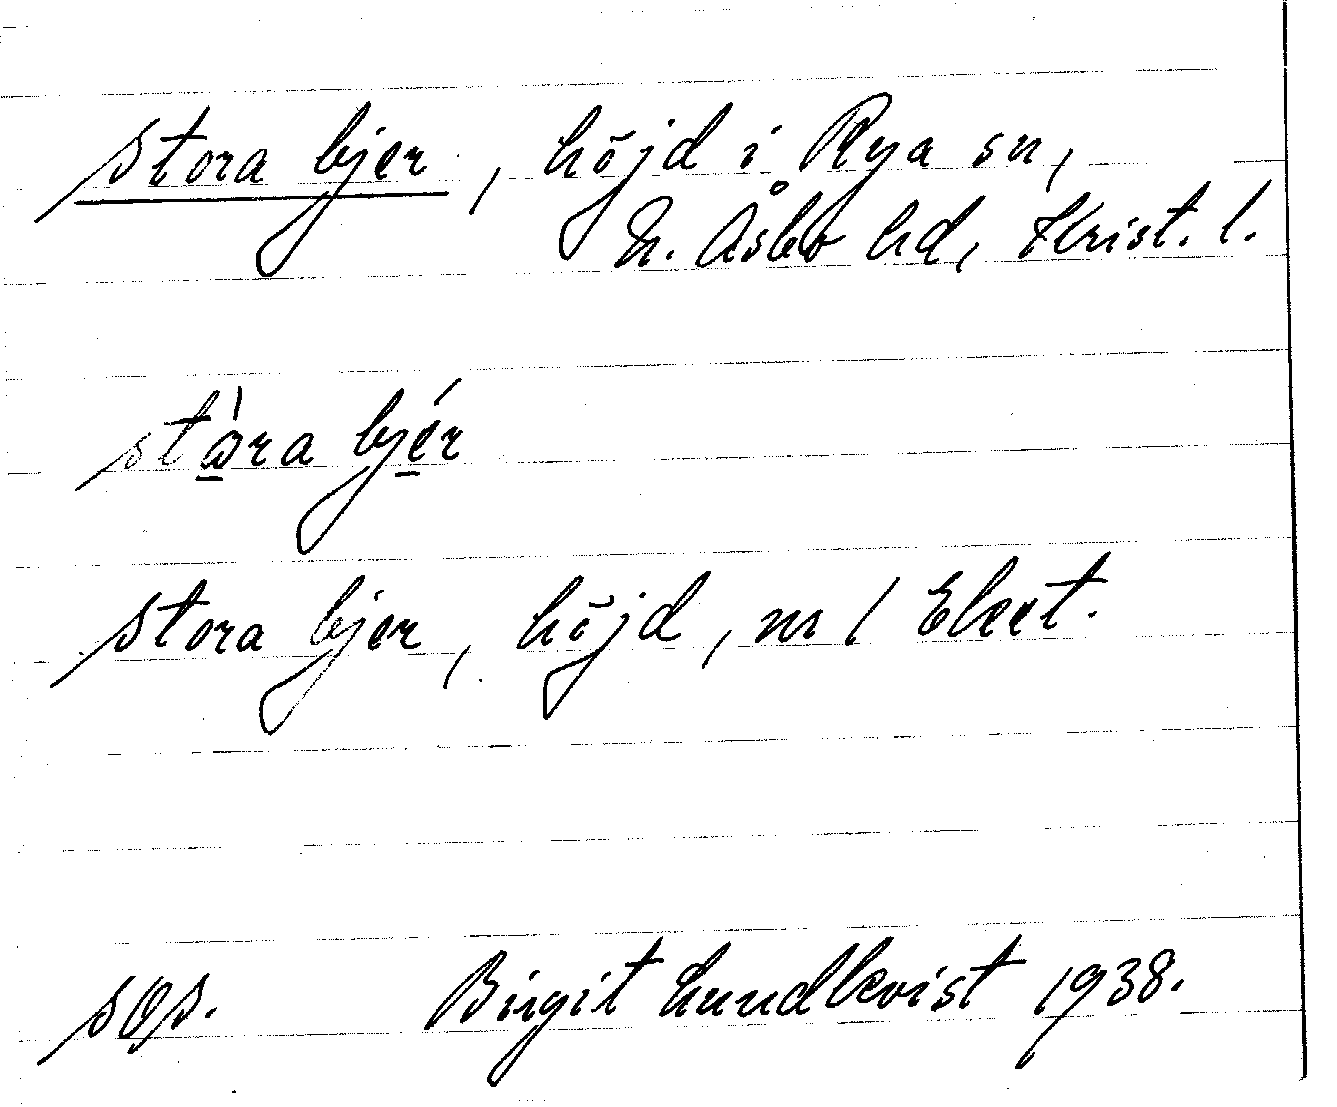 stora bjer, höjd i Rya sn,
N. Åsbo hd, Krist. l.
stòra bjér
stora bjer, höjd, nr 1 Eket.
sOs. Birgit Lundkvist 1938.